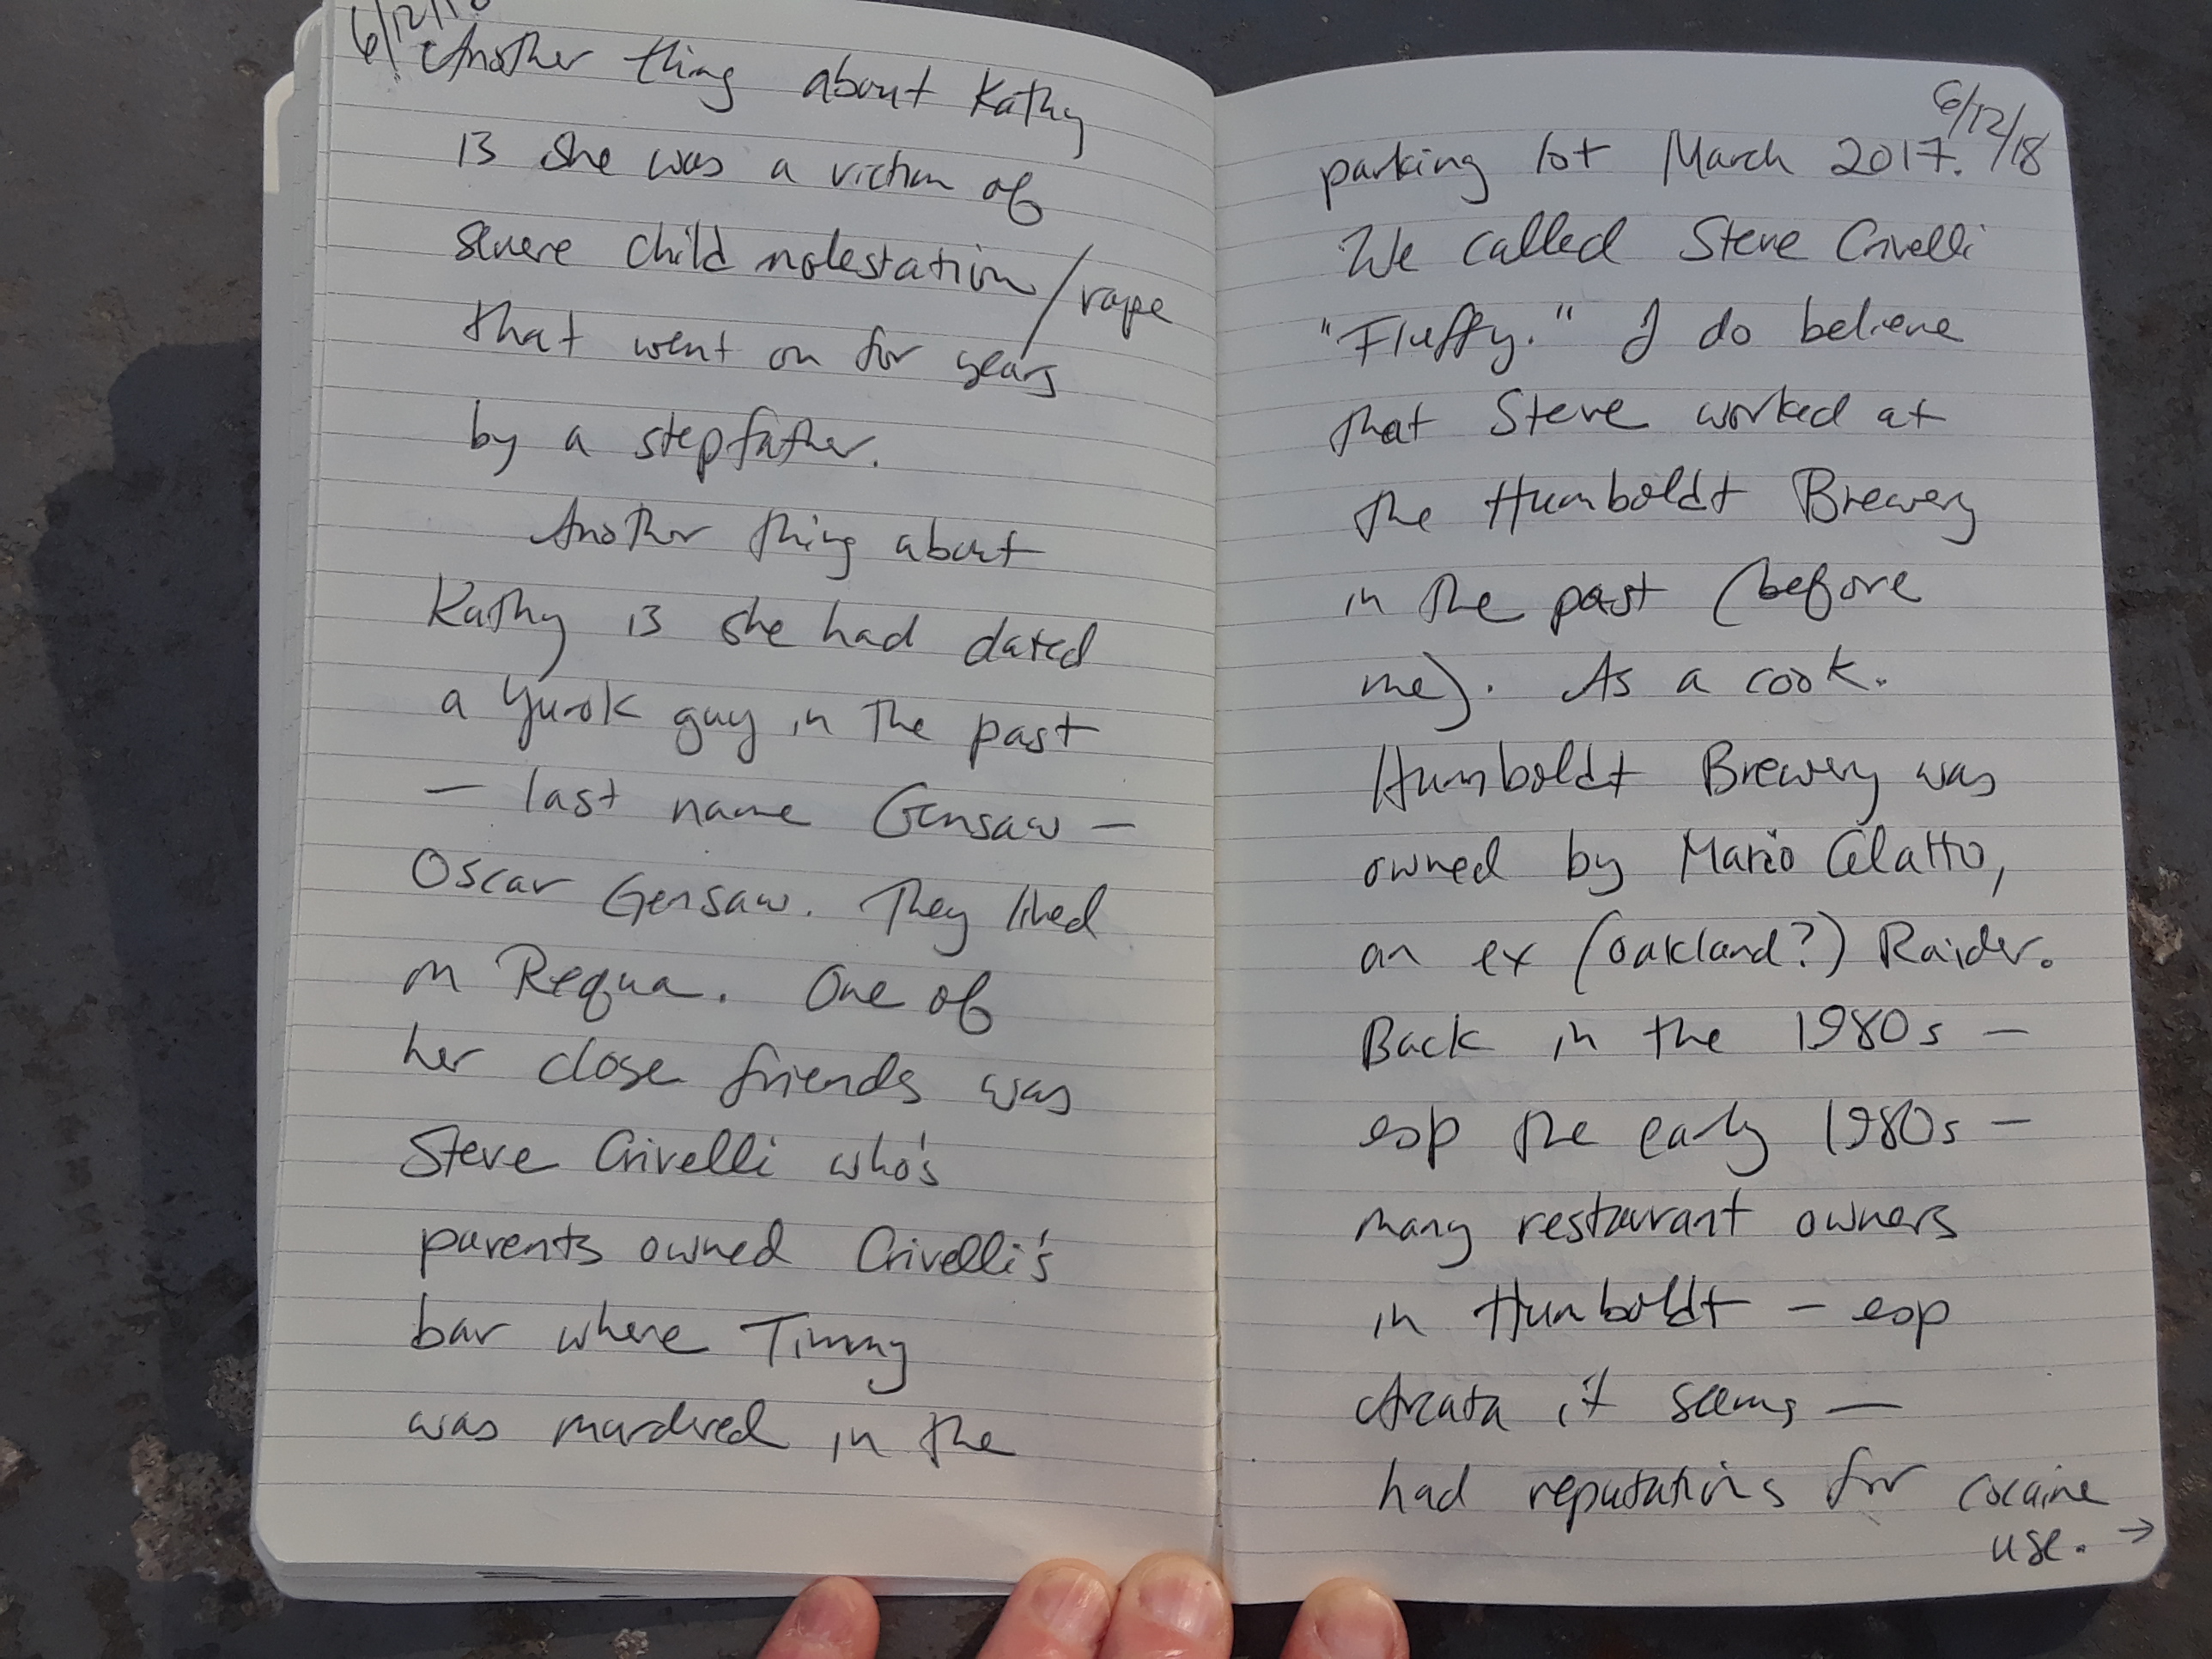 6/12/18
Another thing about Kathy
is she was a victim of
severe child molestation/rape
that went on for years
by a stepfather.
Another thing about
Kathy is she had dated
a Yurok guy in the past
— last name Gensaw —
Oscar Gensaw. They lived
in Requa. One of
her close friends was
Steve Crivelli who's
parents owned Crivelli's
bar where Timmy
was murdered in the
6/12/18
parking lot March 2017.
We called Steve Crivelli
"Fluffy." I do believe
that Steve worked at
the Humboldt Brewery
in the past (before
me). As a cook.
Humboldt Brewery was
owned by Mario Celatto,
an ex (Oakland?) Raider.
Back in the 1980s —
esp the early 1980s —
many restaurant owners
in Humboldt — esp
Arcata it seems —
had reputations for cocaine
use. →